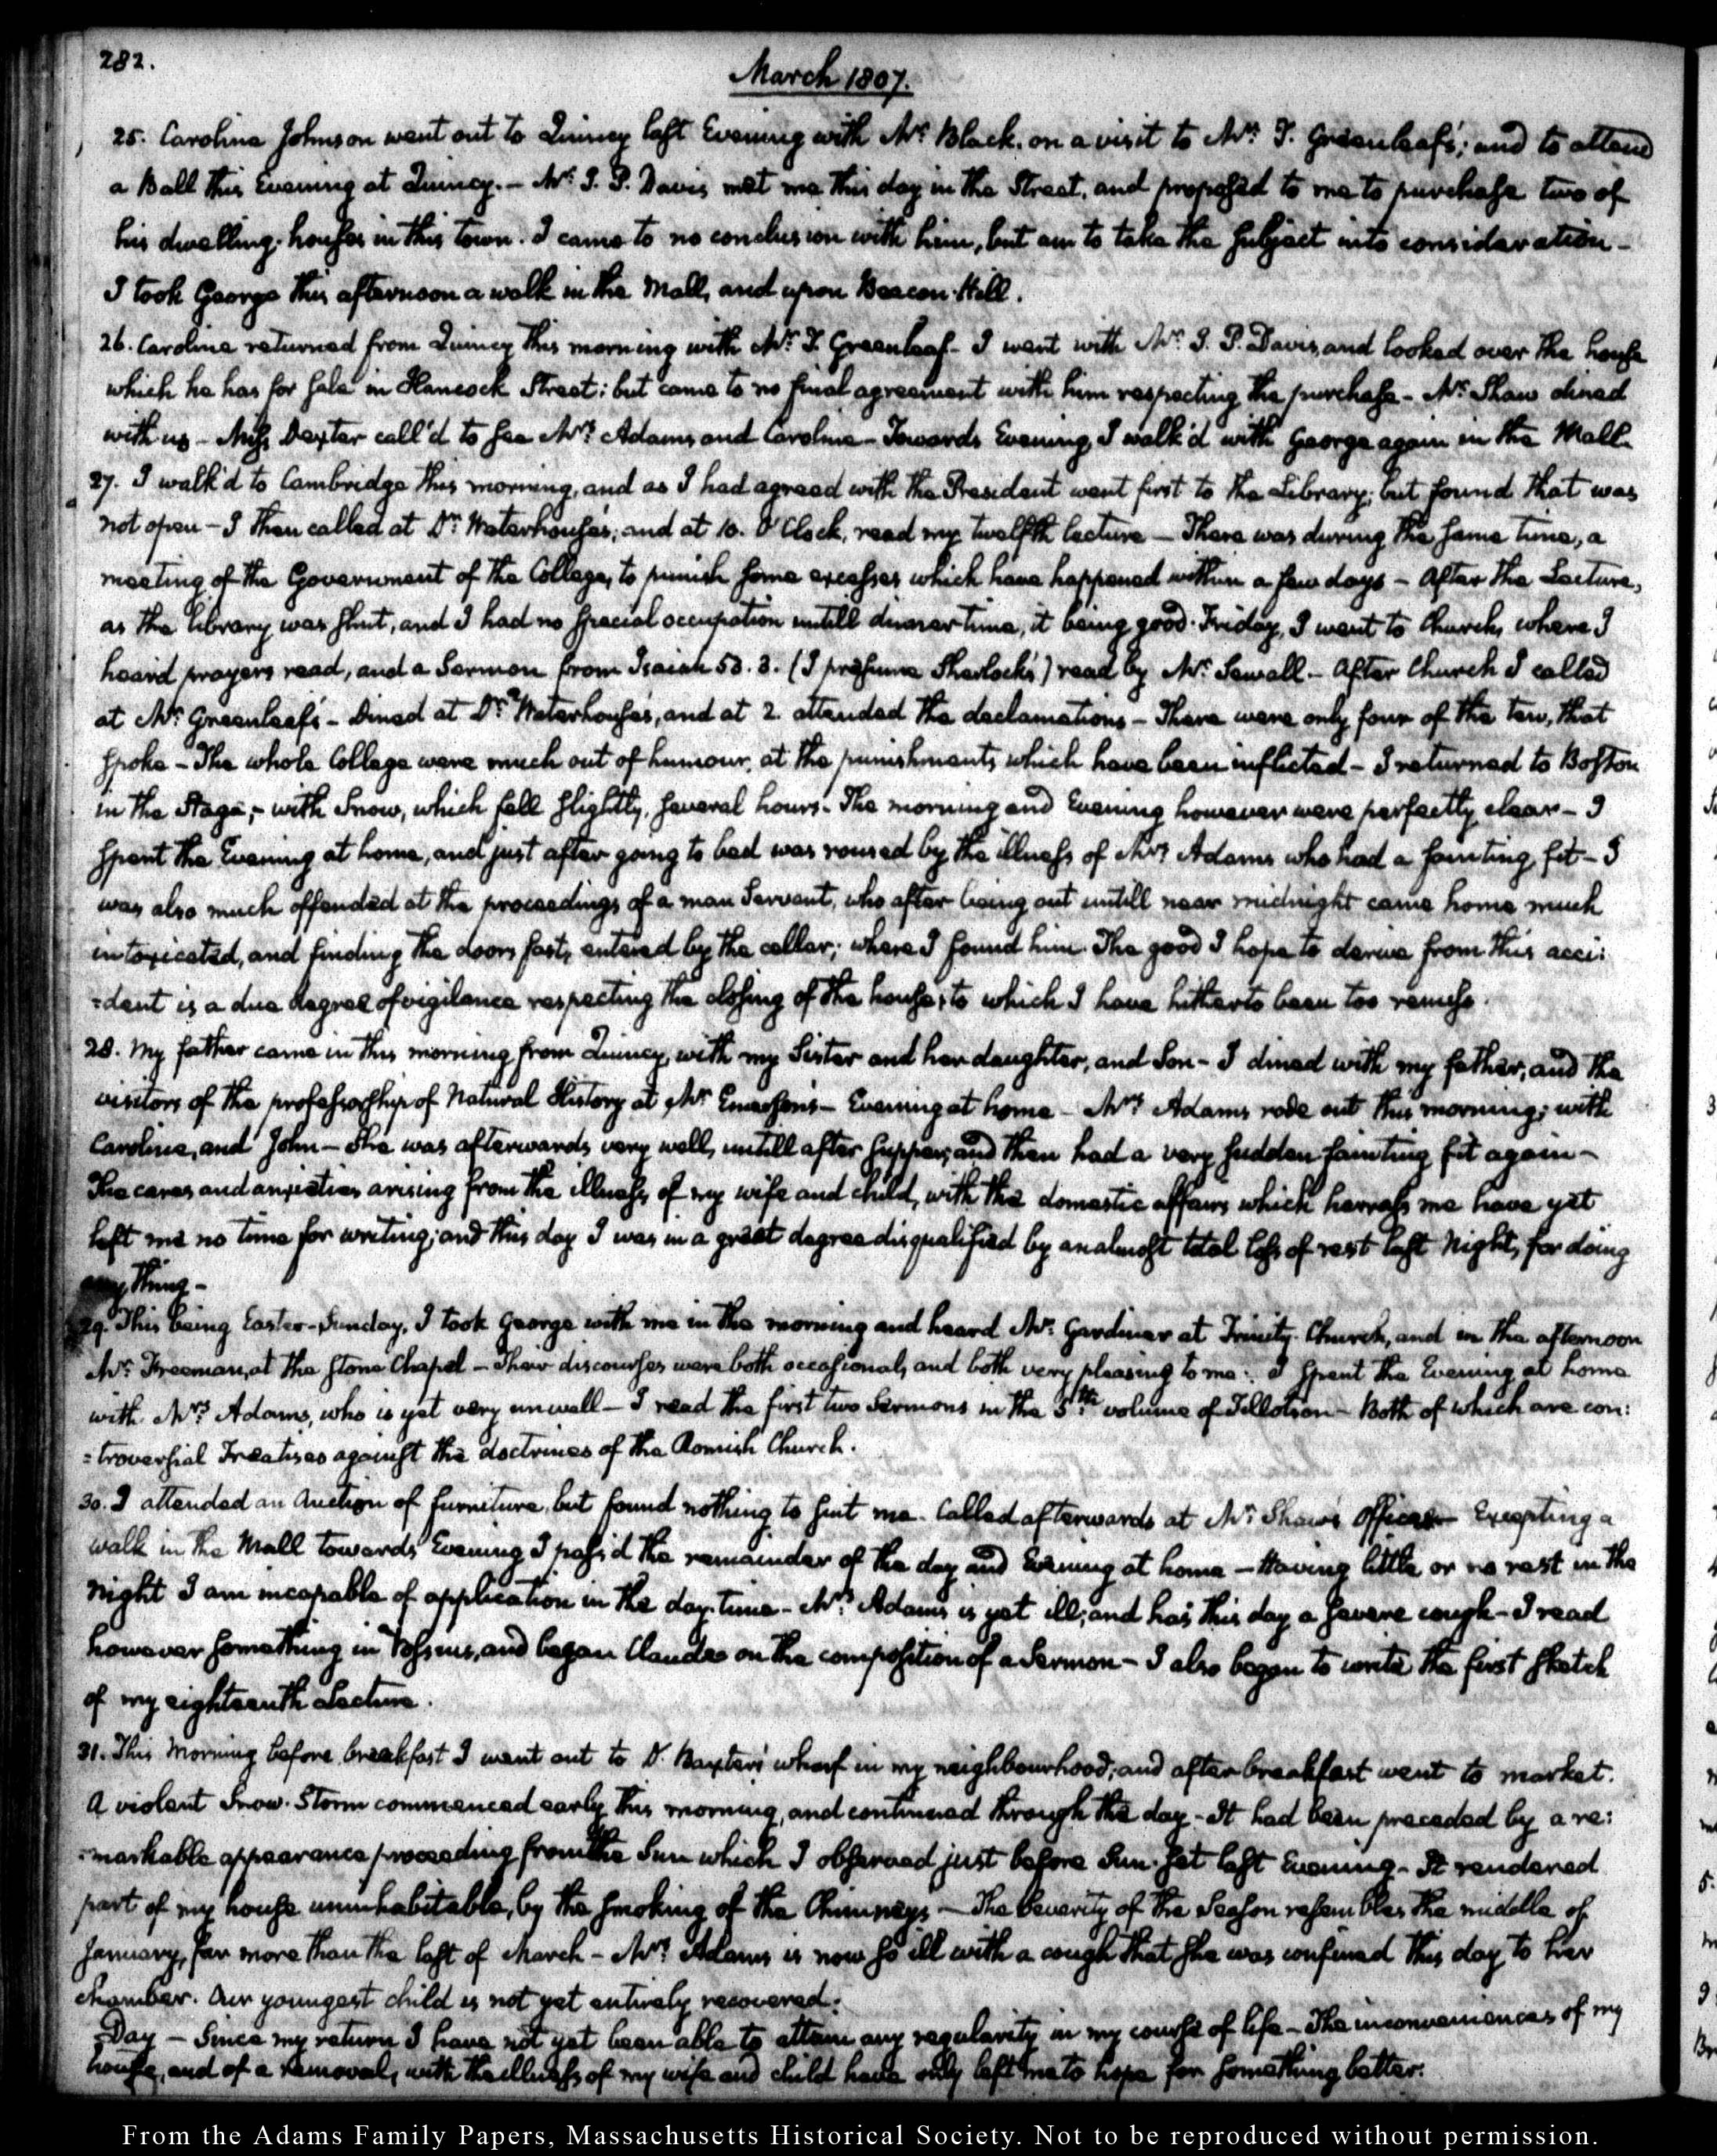 282.
March 1807.
25. Caroline Johnson went out to Quincy last Evening with Mrs. Black, on a visit to Mrs. T. Greenleaf's; and to attend
a Ball this Evening at Quincy. — Mr. I. P. Davis met me this day in the Street, and proposed to me to purchase two of
his dwelling-houses in this town. I came to no conclusion with him, but am to take the subject into consideration —
I took George this afternoon a walk in the Mall, and upon Beacon-Hill.
26. Caroline returned from Quincy this morning with Mr. T. Greenleaf — I went with Mr. I. P. Davis, and looked over the house
which he has for sale in Hancock Street; but came to no final agreement with him respecting the purchase — Mr. Shaw dined
with us — Miss Dexter call'd to see Mrs. Adams, and Caroline — Towards Evening, I walk'd with George again in the Mall.
27. I walk'd to Cambridge this morning, and as I had agreed with the President went first to the Library; but found that was
not open — I then called at Dr. Waterhouse's; and at 10. O'Clock, read my twelfth lecture — There was during the same time, a
meeting of the Government of the College, to punish some excesses which have happened within a few days — After the Lecture,
as the library was shut, and I had no special occupation untill dinner time, it being good-Friday, I went to Church, where I
heard prayers read, and a Sermon from Isaiah 53. 3. (I presume Sherlock's) read by Mr. Sewall — After Church I called
at Mr. Greenleaf's — Dined at Dr. Waterhouse's, and at 2. attended the declamations — There were only four of the ten, that
spoke — The whole College were much out of humour, at the punishments which have been inflicted — I returned to Boston
in the Stage; — with Snow, which fell slightly, several hours. The morning and Evening however were perfectly clear — I
spent the Evening at home, and just after going to bed was roused by the illness of Mrs. Adams who had a fainting fit — I
was also much offended at the proceedings of a man Servant, who after being out untill near midnight came home much
intoxicated, and finding the doors fast, entered by the cellar; where I found him. The good I hope to derive from this acci:
:dent is a due degree of vigilance respecting the closing of the house, to which I have hitherto been too remiss.
28. My father came in this morning from Quincy, with my Sister and her daughter, and Son — I dined with my father, and the
visitors of the professorship of Natural History at Mr. Emerson's — Evening at home — Mrs. Adams rode out this morning; with
Caroline, and John — She was afterwards very well, untill after supper; and then had a very sudden fainting fit again —
The cares and anxieties arising from the illness, of my wife and child, with the domestic affairs which harrass me have yet
left me no time for writing; and this day I was in a great degree disqualified by an almost total loss of rest last Night, for doing
any thing —
29. This being Easter-Sunday, I took George with me in the morning and heard Mr. Gardiner at Trinity-Church, and in the afternoon
Mr. Freeman, at the Stone Chapel — Their discourses were both occasional, and both very pleasing to me. I spent the Evening at home
with Mrs. Adams, who is yet very unwell — I read the first two Sermons in the 5th volume of Tillotson — Both of which are con:
:troversial Treatises against the doctrines of the Romish Church.
30. I attended an Auction of furniture, but found nothing to suit me. Called afterwards at Mr. Shaw's Office — Excepting a
walk in the Mall towards Evening I pass'd the remainder of the day and Evening at home — Having little or no rest in the
Night I am incapable of application in the day-time — Mrs. Adams is yet ill; and has this day a severe cough — I read
however something in Vossius, and began Claude on the composition of a Sermon — I also began to write the first sketch
of my eighteenth Lecture.
31. This Morning before breakfast I went out to D. Baxter's wharf in my neighbourhood; and after breakfast went to market.
A violent Snow-Storm commenced early this morning, and continued through the day — It had been preceded by a re:
:markable appearance proceeding from the Sun which I observed just before Sun-set last Evening — It rendered
part of my house uninhabitable, by the smoking of the Chimneys — The Severity of the Season resembles the middle of
January, far more than the last of March — Mrs. Adams is now so ill with a cough that she was confined this day to her
chamber. Our youngest child is not yet entirely recovered.
Day — Since my return I have not yet been able to attain any regularity in my course of life — The inconveniences of my
house, and of a removal, with the illness of my wife and child have only left me to hope for something better.
From the Adams Family Papers, Massachusetts Historical Society. Not to be reproduced without permission.